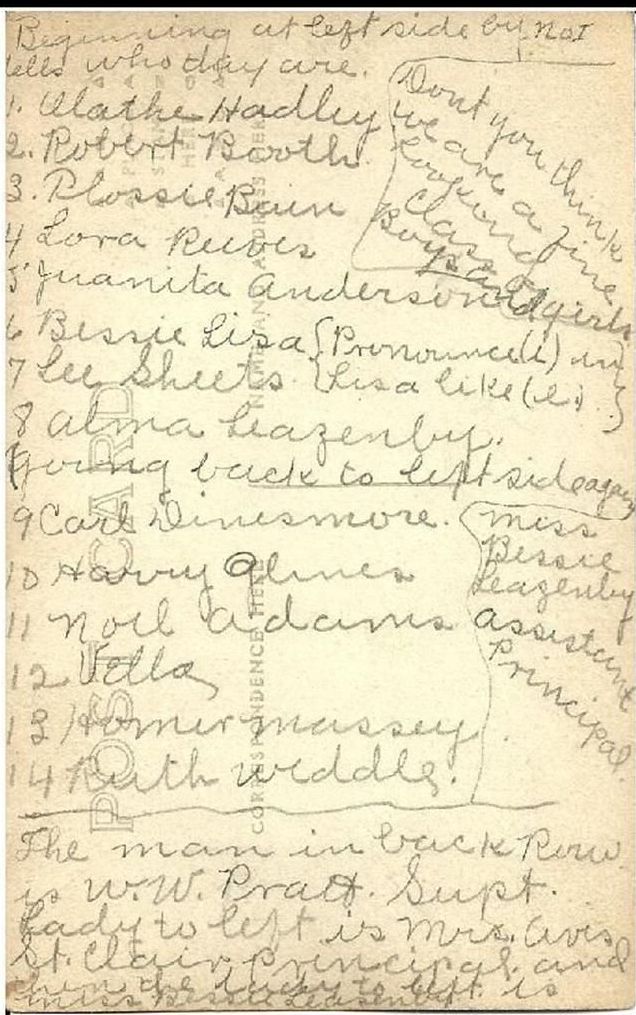 Beginning at left side by No 1
tells who day are.
1. Olathe Hadley
2. Robert Booth.
3. Plossie Bain
4 Lora Reeves
5 Juanita Anderson
6 Bessie Lisa {Pronounce (i) in}
7 Lee Sheets. {Lisa like (e.)}
8 alma Leazenby.
Going back to left side again
9 Carl Dinesmore.
10 Harry Glines
11 Noel adams
12 Vella
13 Homer massey
14 Ruth weddle.
Dont you think
we are a fine
looking
Class of
Boys and girls
miss
Bessie
Leazenby
assistant
Principal.
The man in back Row
is W.W. Pratt. Supt.
Lady to left is Mrs. Avis
St. Clair Principal, and
then the lady to left is
miss Bessie Leazenby
POST CARD
CORRESPONDENCE HERE
NAME AND ADDRESS HERE